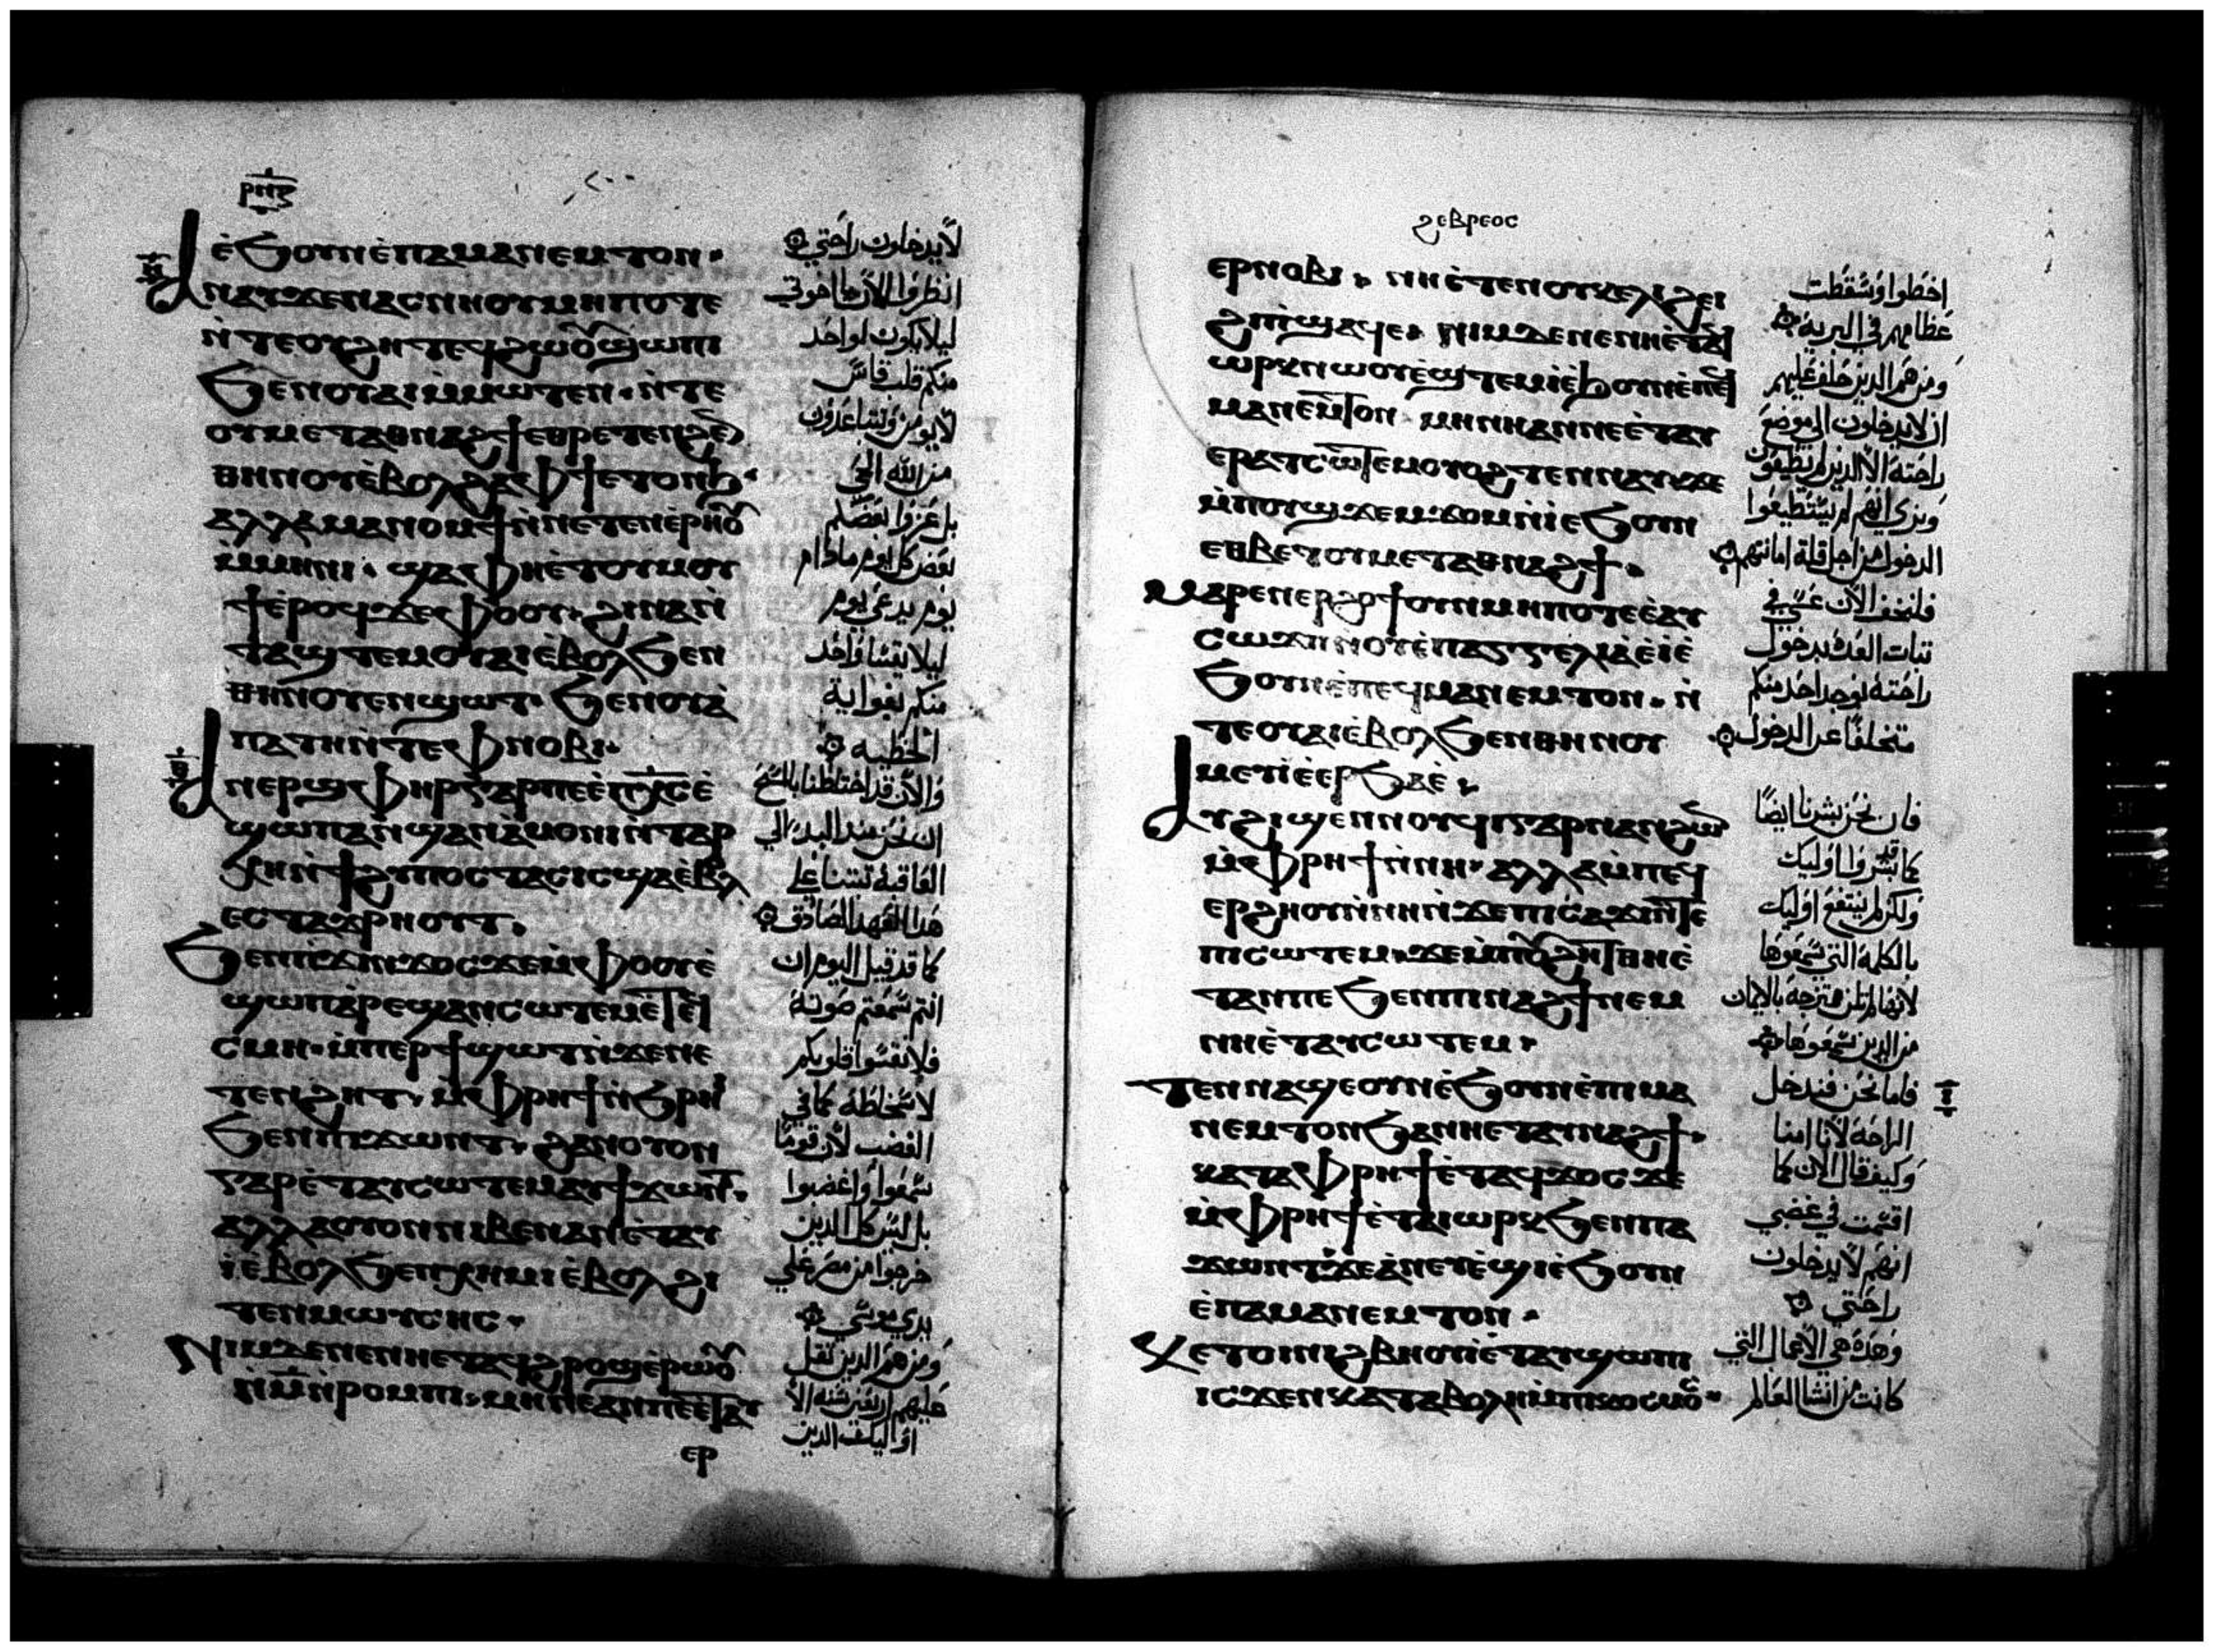 ⲣⲛⲍ
ⲉ̀ϧⲟⲩⲛⲉ̀ⲡⲁⲙⲁⲛⲉⲙⲧⲟⲛ·
ⲁⲛⲁⲩϫⲉⲛⲁⲥⲛⲏⲟⲩⲙⲏⲡⲟⲧⲉ
ⲛ̀ⲧⲉⲟⲩϩⲏⲧⲉϥϩⲱⲟⲩϣⲱⲡⲓ
ϧⲉⲛⲟⲩⲁⲓⲙ̀ⲙⲱⲧⲉⲛ·ⲛ̀ⲧⲉ
ⲟⲩⲙⲉⲧⲁⲑⲛⲁϩϯⲉⲑⲣⲉⲧⲉⲛϩⲉⲛ
ⲑⲏⲛⲟⲩⲉ̀ⲃⲟⲗϩⲁⲫϯⲉⲧⲟⲛϧ·
ⲁⲗⲗⲁⲙⲁⲛⲟⲙϯⲛ̀ⲛⲉⲧⲉⲛⲉ̀ⲣⲏⲟⲩ
ⲙ̀ⲙⲏⲛⲓ·ϣⲁⲫⲏⲉ̀ⲧⲟⲩⲙⲟⲩ
ϯⲉ̀ⲣⲟϥϫⲉⲫⲟⲟⲩ·ϩⲓⲛⲁⲛ̀
ⲧⲁϣⲧⲉⲙⲟⲩⲁⲓⲉ̀ⲃⲟⲗϧⲉⲛ
ⲑⲏⲛⲟⲩⲉⲛϣⲱⲧ·ϧⲉⲛⲟⲩⲁ̀
ⲡⲁⲧⲏⲛ̀ⲧⲉⲫⲛⲟⲃⲓ·
ⲁⲛⲉⲣϣⲫⲏⲣⲅⲁⲣⲡⲉⲉ̀ⲡⲭⲥⲉ̀
ϣⲱⲡⲁⲛϣⲁⲛⲁ̀ⲙⲟⲛⲓⲛ̀ⲧⲁⲣ
ⲭⲏⲛ̀ϯϩⲩⲡⲟⲥⲧⲁⲥⲓⲥϣⲁⲉ̀ⲃⲟⲗ
ⲉⲥⲧⲁϫⲣⲏⲟⲩⲧ·
ϧⲉⲛⲡ̀ϫⲓⲛϫⲟⲥϫⲉⲙ̀ⲫⲟⲟⲩⲉ̀
ϣⲱⲡⲁ̀ⲣⲉϣⲁⲛⲥⲱⲧⲉⲙⲉ̀ⲧⲉϥ
ⲥⲙⲏ·ⲙ̀ⲡⲉⲣϯϣⲱⲧⲛ̀ϫⲉⲛⲉ
ⲧⲉⲛϩⲏⲧ·ⲙ̀ⲫⲣⲏϯⲛ̀ϧⲣⲏⲓ
ϧⲉⲛⲡⲓϫⲱⲛⲧ·ϩⲁⲛⲟⲩⲟⲛ
ⲅⲁⲣⲉ̀ⲧⲁⲩⲥⲱⲧⲉⲙⲁⲩϯϫⲱⲛⲧ·
ⲁⲗⲗⲁⲟⲩⲟⲛⲛⲓⲃⲉⲛⲁⲛⲉ̀ⲧⲁⲩ
ⲓ̀ⲉ̀ⲃⲟⲗϧⲉⲛⲭⲏⲙⲓⲉ̀ⲃⲟⲗϩⲓ
ⲧⲉⲛⲙⲱⲩⲥⲏⲥ·
ⲛⲓⲙⲇⲉⲛⲉⲛⲏⲉⲧⲁϥϩⲣⲟϣⲉ̀ⲣⲱⲟⲩ
ⲛ̀ⲙ̄ⲛ̀ⲣⲟⲙⲡⲓ·ⲙⲏⲛⲉⲁⲛⲡⲉⲉ̀ⲧⲁⲩ
ⲉⲣ
لا يدخلون راحتي
انظروا الان يا اخوتي
ليلا يكون لواحد
منكم قلب قاس
لا يومن وتتباعدون
من الله الحي
بل عزوا بعضكم
بعض كل يوم مادام
يوم يدعى يوم
ليلا يقسا واحد
منكم بغواية
الخطيه
والان قد اختلطنا بالمسيح
ان نحن منذ البدء الي
العاقبة ثبتنا علي
هذا العهد الصادق
كما قد قيل اليوم ان
انتم سمعتم صوته
فلا تقسوا قلوبكم
لاسخاطه كما في
الغضب لان قوما
سمعوا واغضبوا
بل ليس كل الذين
خرجوا من مصر علي
يدي موسي
ومن هم الذين ثقل
عليهم اربعين سنه الا
اوليك الذين
ϩⲉⲃⲣⲉⲟⲥ
ⲉⲣⲛⲟⲃⲓ·ⲛⲏⲉ̀ⲧⲉⲛⲟⲩⲕⲉⲗⲓϩⲉⲓ
ϩⲓⲡ̀ϣⲁϥⲉ·ⲛⲓⲙⲇⲉⲛⲉⲛⲏⲉ̀ⲧⲁϥ
ⲱⲣⲕⲛⲱⲟⲩⲉ̀ϣⲧⲉⲙⲓ̀ⲉ̀ϧⲟⲩⲛⲉ̀ⲡⲉϥ
ⲙⲁⲛⲉⲙⲧⲟⲛ·ⲙⲏⲛⲏⲁⲛⲛⲉⲉ̀ⲧⲁⲩ
ⲉⲣⲁⲧⲥⲱⲧⲉⲙⲟⲩⲟϩⲧⲉⲛⲛⲁⲩϫⲉ
ⲙ̀ⲡⲟⲩϣϫⲉⲙϫⲟⲙⲛ̀ⲓ̀ⲉϧⲟⲩⲛ
ⲉⲑⲃⲉⲧⲟⲩⲙⲉⲧⲁⲑⲛⲁϩϯ·
ⲙⲁⲣⲉⲛⲉⲣϩⲟϯⲟⲩⲛⲙⲏⲡⲟⲧⲉⲉ̀ⲁⲩ
ⲥⲱϫⲡⲛ̀ⲟⲩⲉ̀ⲡⲁⲅⲅⲉⲗⲓⲁⲉ̀ⲓ̀ⲉ̀
ϧⲟⲩⲛⲉ̀ⲡⲉϥⲙⲁⲛⲉⲙⲧⲟⲛ·ⲛ̀
ⲧⲉⲟⲩⲁⲓⲉ̀ⲃⲟⲗϧⲉⲛⲑⲏⲛⲟⲩ
ⲙⲉⲩⲓ̀ⲉ̀ⲉⲣϧⲁⲉ̀·
ⲁⲩϩⲓϣⲉⲛⲛⲟⲩϥⲓⲅⲁⲣⲛⲁⲛϩⲱⲛ
ⲙ̀ⲫⲣⲏϯⲛ̀ⲛⲏ·ⲁⲗⲗⲁⲙ̀ⲡⲉϥ
ⲉⲣϩⲏⲟⲩⲛ̀ⲛⲏⲛ̀ϫⲉⲡⲓⲥⲁϫⲓⲛ̀ⲧⲉ
ⲡⲓⲥⲱⲧⲉⲙ·ϫⲉⲙ̀ⲡⲟⲩϩⲏⲧⲑⲏⲉ̀
ⲧⲁⲛⲡⲉϧⲉⲛⲡⲓⲛⲁϩϯⲛⲉⲙ
ⲛⲏⲉ̀ⲧⲁⲩⲥⲱⲧⲉⲙ·
ⲧⲉⲛⲛⲁϣⲉⲟⲩⲛⲉ̀ϧⲟⲩⲛⲉ̀ⲡⲓⲙⲁ
ⲛⲉⲙⲧⲟⲛϧⲁⲛⲏⲉⲧⲁⲩⲛⲁϩϯ·
ⲕⲁⲧⲁⲫⲣⲏϯⲉ̀ⲧⲁϥϫⲟⲥϫⲉ
ⲙ̀ⲫⲣⲏϯⲉ̀ⲧⲁⲓⲱⲣⲕϧⲉⲛⲡⲁ
ϫⲱⲛⲧϫⲉⲁ̀ⲛⲉⲩⲉ̀ϣⲓ̀ⲉ̀ϧⲟⲩⲛ
ⲉ̀ⲡⲁⲙⲁⲛⲉⲙⲧⲟⲛ·
ⲕⲉⲧⲟⲓⲛⲓϩⲃⲏⲟⲩⲓ̀ⲉ̀ⲧⲁⲩϣⲱⲡⲓ
ⲓⲥϫⲉⲛⲕⲁⲧⲁⲃⲟⲗⲏⲙ̀ⲡⲓⲕⲟⲥⲙⲟⲥ·
اخطوا وسقطت
عظامهم في البرية
ومن هم الذين حلف عليهم
ان لا يدخلون الى موضع
راحته الا الذين لم يطيعون
ونري انهم لم يستطيعوا
الدخول من اجل قلة امانتهم
فلنخف الان عسي في
ثبات العده بدخول
راحته يوجد احد منكم
متخلفا عن الدخول
فان نحن بشرنا ايضا
كما قد بشروا اوليك
ولكن لم ينتفع اوليك
بالكلمة التي سمعوها
لانها لم تكن ممتزجة بالايمان
من الذين سمعوها
فاما نحن فندخل
الراحة لانا امنا
وكيف قال الان كما
اقسمت في غضبي
انهم لا يدخلون
راحتي
وهذه هي الاعمال التي
كانت من انشا العالم